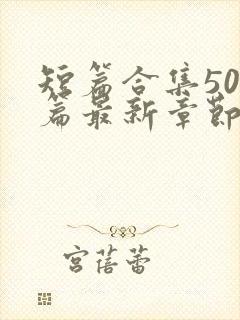 短篇合集50
篇最新章節
宮蓓蕾